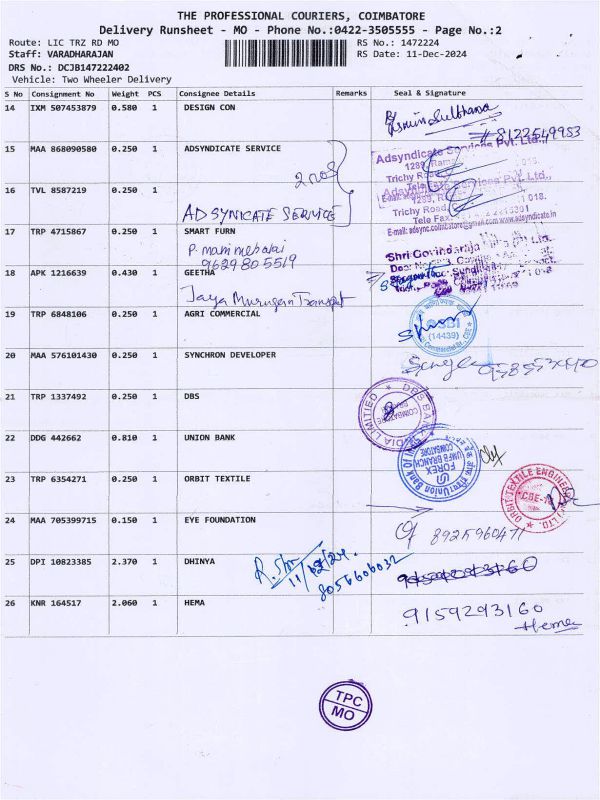 THE PROFESSIONAL COURIERS, COIMBATORE
Delivery Runsheet - MO - Phone No.:0422-3505555 - Page No.:2
Route: LIC TRZ RD MO RS No.: 1472224
Staff: VARADHARAJAN RS Date: 11-Dec-2024
DRS No.: DCJB147222402
Vehicle: Two Wheeler Delivery
S No Consignment No Weight PCS Consignee Details Remarks Seal & Signature
14 IXM 507453879 0.580 1 DESIGN CON
8122549953
15 MAA 868090580 0.250 1 ADSYNDICATE SERVICE
Adsyndicate Services Pvt. Ltd.,
Trichy Road
16 TVL 8587219 0.250 1
ADSYNDICATE SERVICE
Trichy Road
E-mail: adsync.coimbatore@gmail.com www.adsyndicate.in
17 TRP 4715867 0.250 1 SMART FURN
9629805519
Shri Govindaraja
18 APK 1216639 0.430 1 GEETHA
Jaya Murugan Transport
19 TRP 6848106 0.250 1 AGRI COMMERCIAL
SBI
(14439)
20 MAA 576101430 0.250 1 SYNCHRON DEVELOPER
21 TRP 1337492 0.250 1 DBS
DBS BANK INDIA LIMITED
COIMBATORE
22 DDG 442662 0.810 1 UNION BANK
FOREX
UMFB BRANCH
COIMBATORE
Union Bank Of
23 TRP 6354271 0.250 1 ORBIT TEXTILE
24 MAA 705399715 0.150 1 EYE FOUNDATION
8925960471
25 DPI 10823385 2.370 1 DHINYA
11/12/24
8056606032
26 KNR 164517 2.060 1 HEMA
9159293160
Hema
TPC
MO